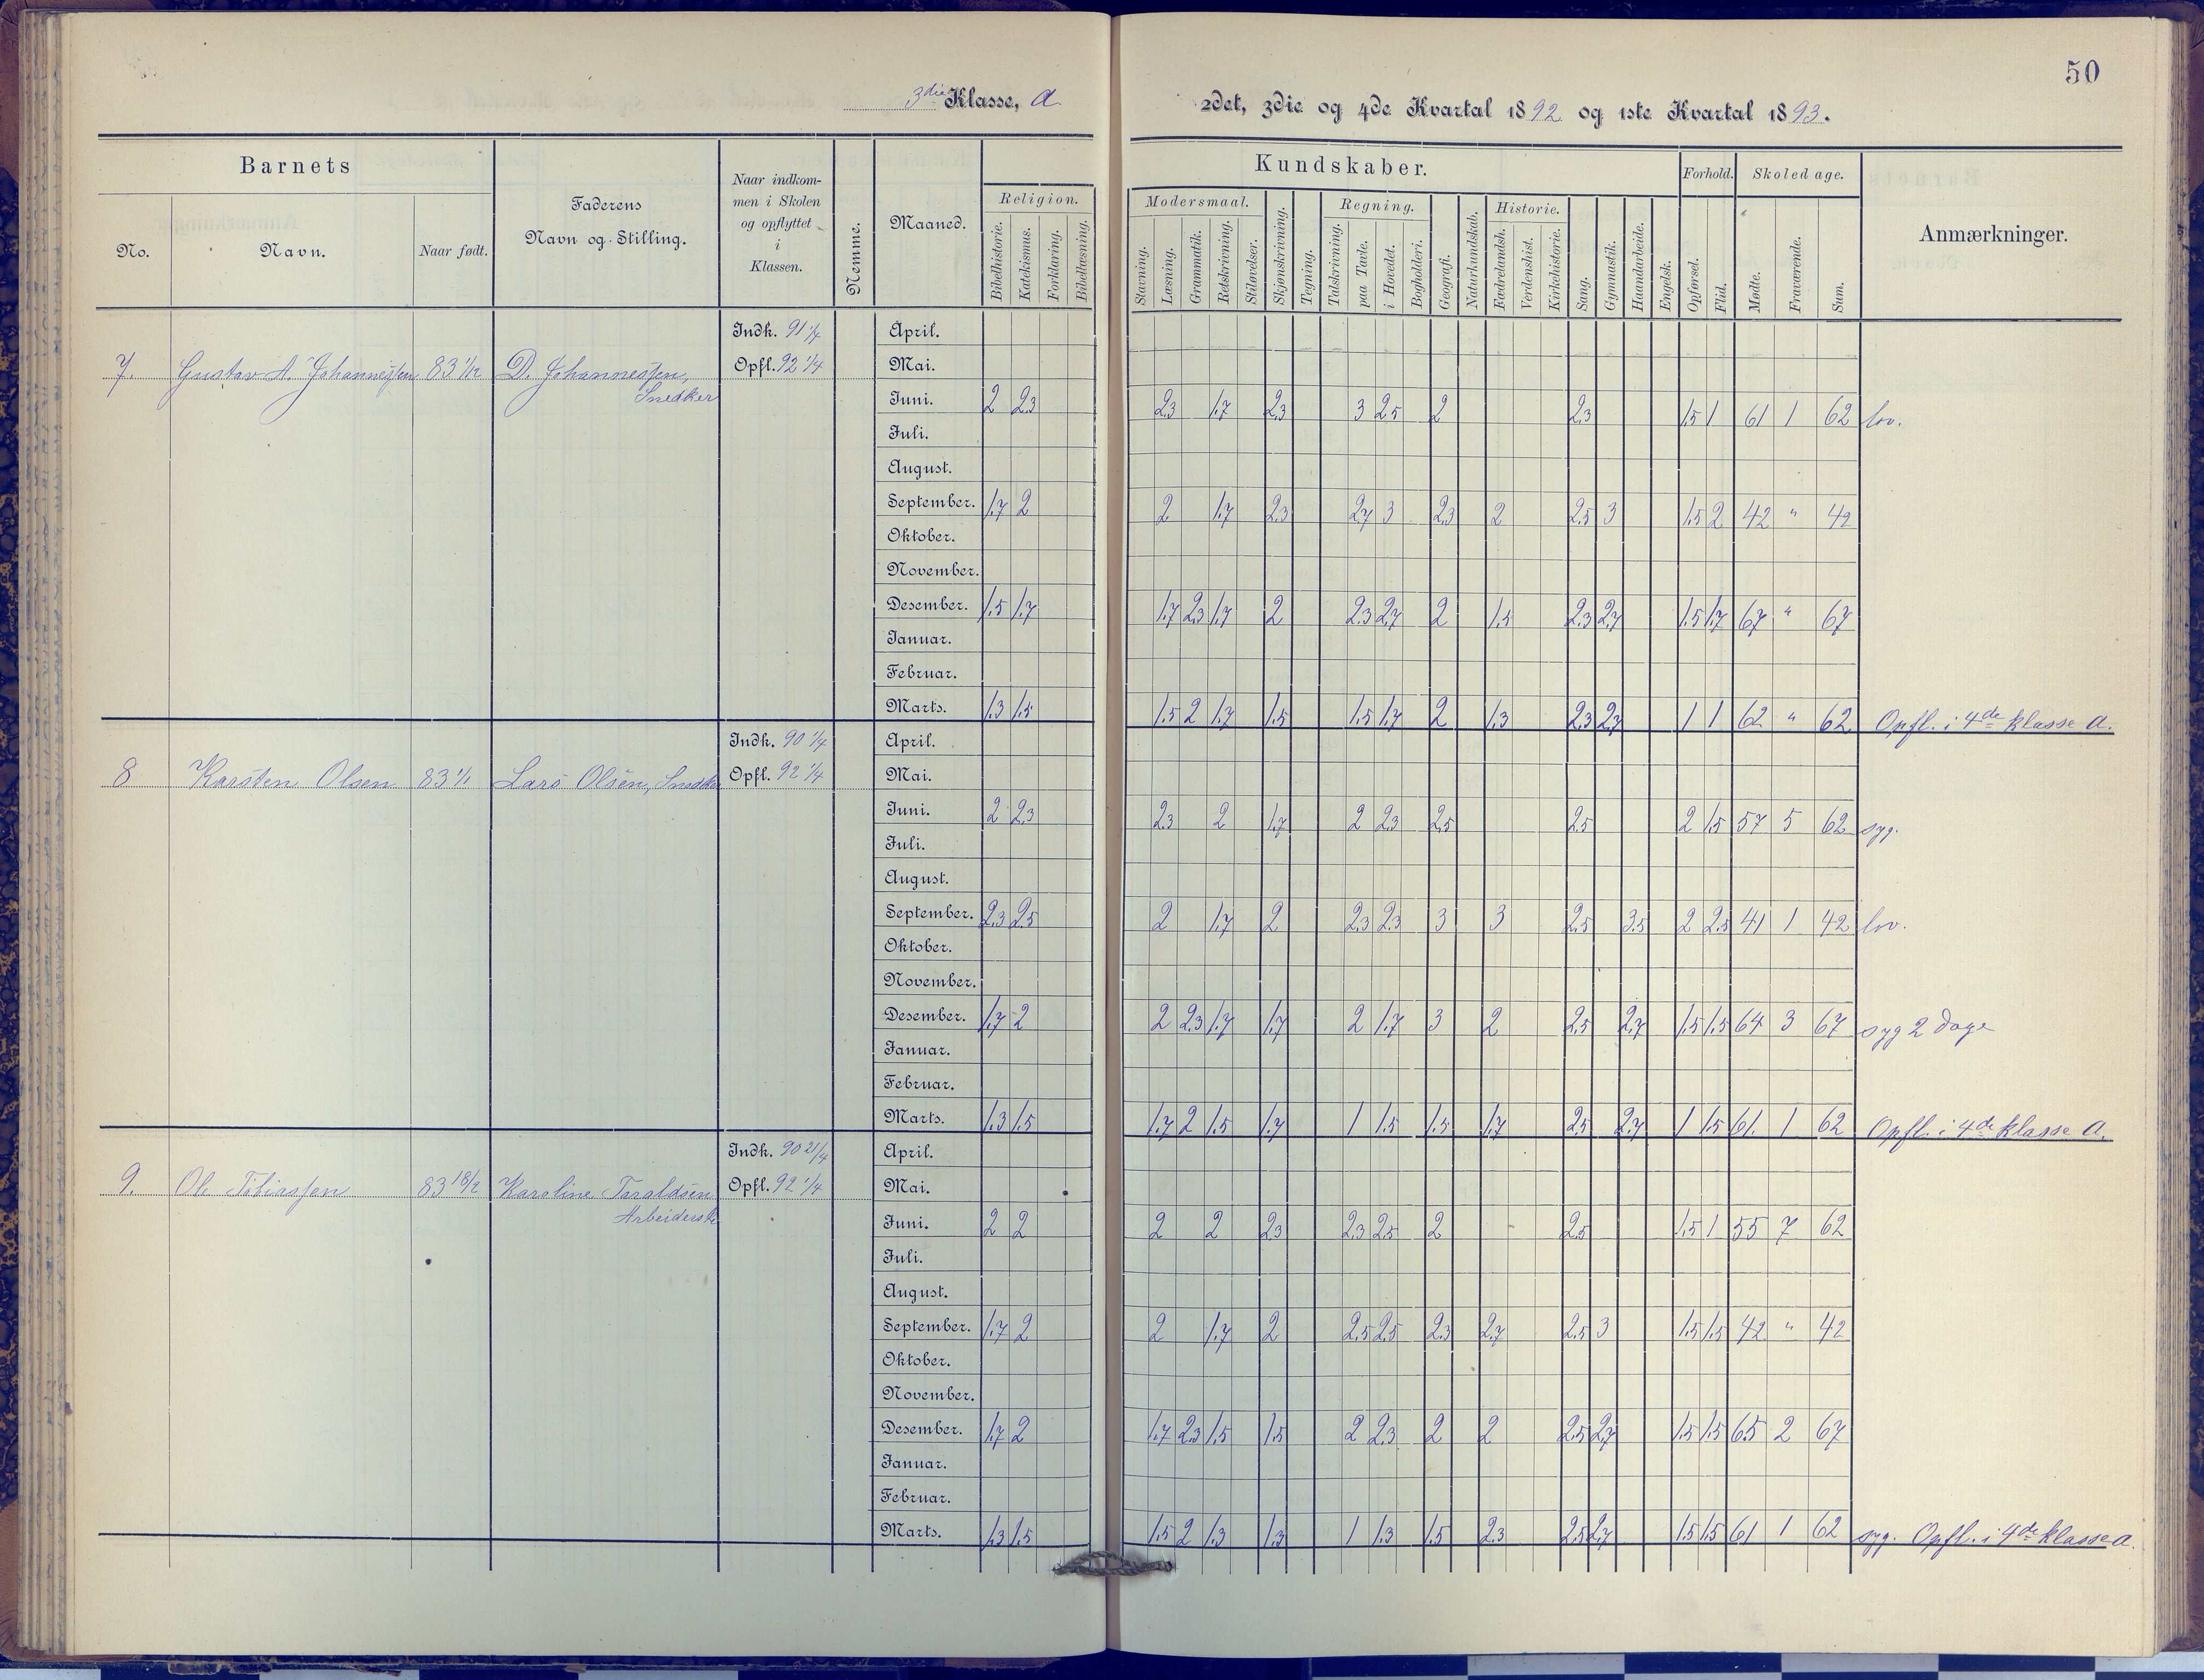 50
3die Klasse, A
2det, 3die og 4de Kvartal 1892 og 1ste Kvartal 1893.
Barnets
No.
Navn.
Naar født.
Faderens
Navn og Stilling.
Naar indkom-
men i Skolen
og opflyttet
i
Klassen.
Nemme.
Maaned.
Religion.
Bibelhistorie.
Katekismus.
Forklaring.
Bibellæsning.
Kundskaber.
Modersmaal.
Stavning.
Læsning.
Grammatik.
Retskrivning.
Stiløvelser.
Skjønskrivning.
Tegning.
Regning.
Talskrivning.
paa Tavle.
i Hovedet.
Bogholderi.
Geografi.
Naturkundskab.
Historie.
Fædrelandsh.
Verdenshist.
Kirkehistorie.
Sang.
Gymnastik.
Haandarbeide.
Engelsk.
Forhold.
Opførsel.
Flid.
Skoledage.
Mødte.
Fraværende.
Sum.
Anmærkninger.
Indk. 91 1/7 April.
7. Gustav A. Johannessen 83 1/12 D. Johannessen, Opfl. 92 1/4 Mai.
Snedker
Juni. 2 2.3 2.3 1.7 2.3 3 2.5 2 2.3 1.5 1 61 1 62 lov.
Juli.
August.
September. 1.7 2 2 1.7 2.3 2.7 3 2.3 2 2.5 3 1.5 2 42 " 42
Oktober.
November.
Desember. 1.5 1.7 1.7 2.3 1.7 2 2.3 2.7 2 1.5 2.3 2.7 1.5 1.7 67 " 67
Januar.
Februar.
Marts. 1.3 1.5 1.5 2 1.7 1.5 1.5 1.7 2 1.3 2.3 2.7 1 1 62 " 62 Opfl. i 4de klasse A.
Indk. 90 1/4 April.
8 Karsten Olsen 83 1/1 Lars Olsen, Snedker Opfl. 92 1/4 Mai.
Juni. 2 2.3 2.3 2 1.7 2 2.3 2.5 2.5 2 1.5 57 5 62 syg.
Juli.
August.
September. 2.3 2.5 2 1.7 2 2.3 2.3 3 3 2.5 3.5 2 2.5 41 1 42 lov.
Oktober.
November.
Desember. 1.7 2 2 2.3 1.7 1.7 2 1.7 3 2 2.5 2.7 1.5 1.5 64 3 67 syg 2 Dage
Januar.
Februar.
Marts. 1.3 1.5 1.7 2 1.5 1.7 1 1.5 1.5 1.7 2.5 2.7 1 1.5 61. 1 62 Opfl. i 4de klasse A.
Indk. 90 21/4 April.
9. Ole Tobiassen 83 18/2 Karoline Taraldsen Opfl. 92 1/4 Mai.
Arbeiderske
Juni. 2 2 2 2 2.3 2.3 2.5 2 2.5 1.5 1 55 7 62
Juli.
August.
September. 1.7 2 2 1.7 2 2.5 2.5 2.3 2.7 2.5 3 1.5 1.5 42 " 42
Oktober.
November.
Desember. 1.7 2 1.7 2.3 1.5 1.5 2 2.3 2 2 2.5 2.7 1.5 1.5 65 2 67
Januar.
Februar.
Marts. 1.3 1.5 1.5 2 1.3 1.3 1 1.3 1.5 2.3 2.5 2.7 1.5 1.5 61 1 62 syg. Opfl. i 4de klasse A.